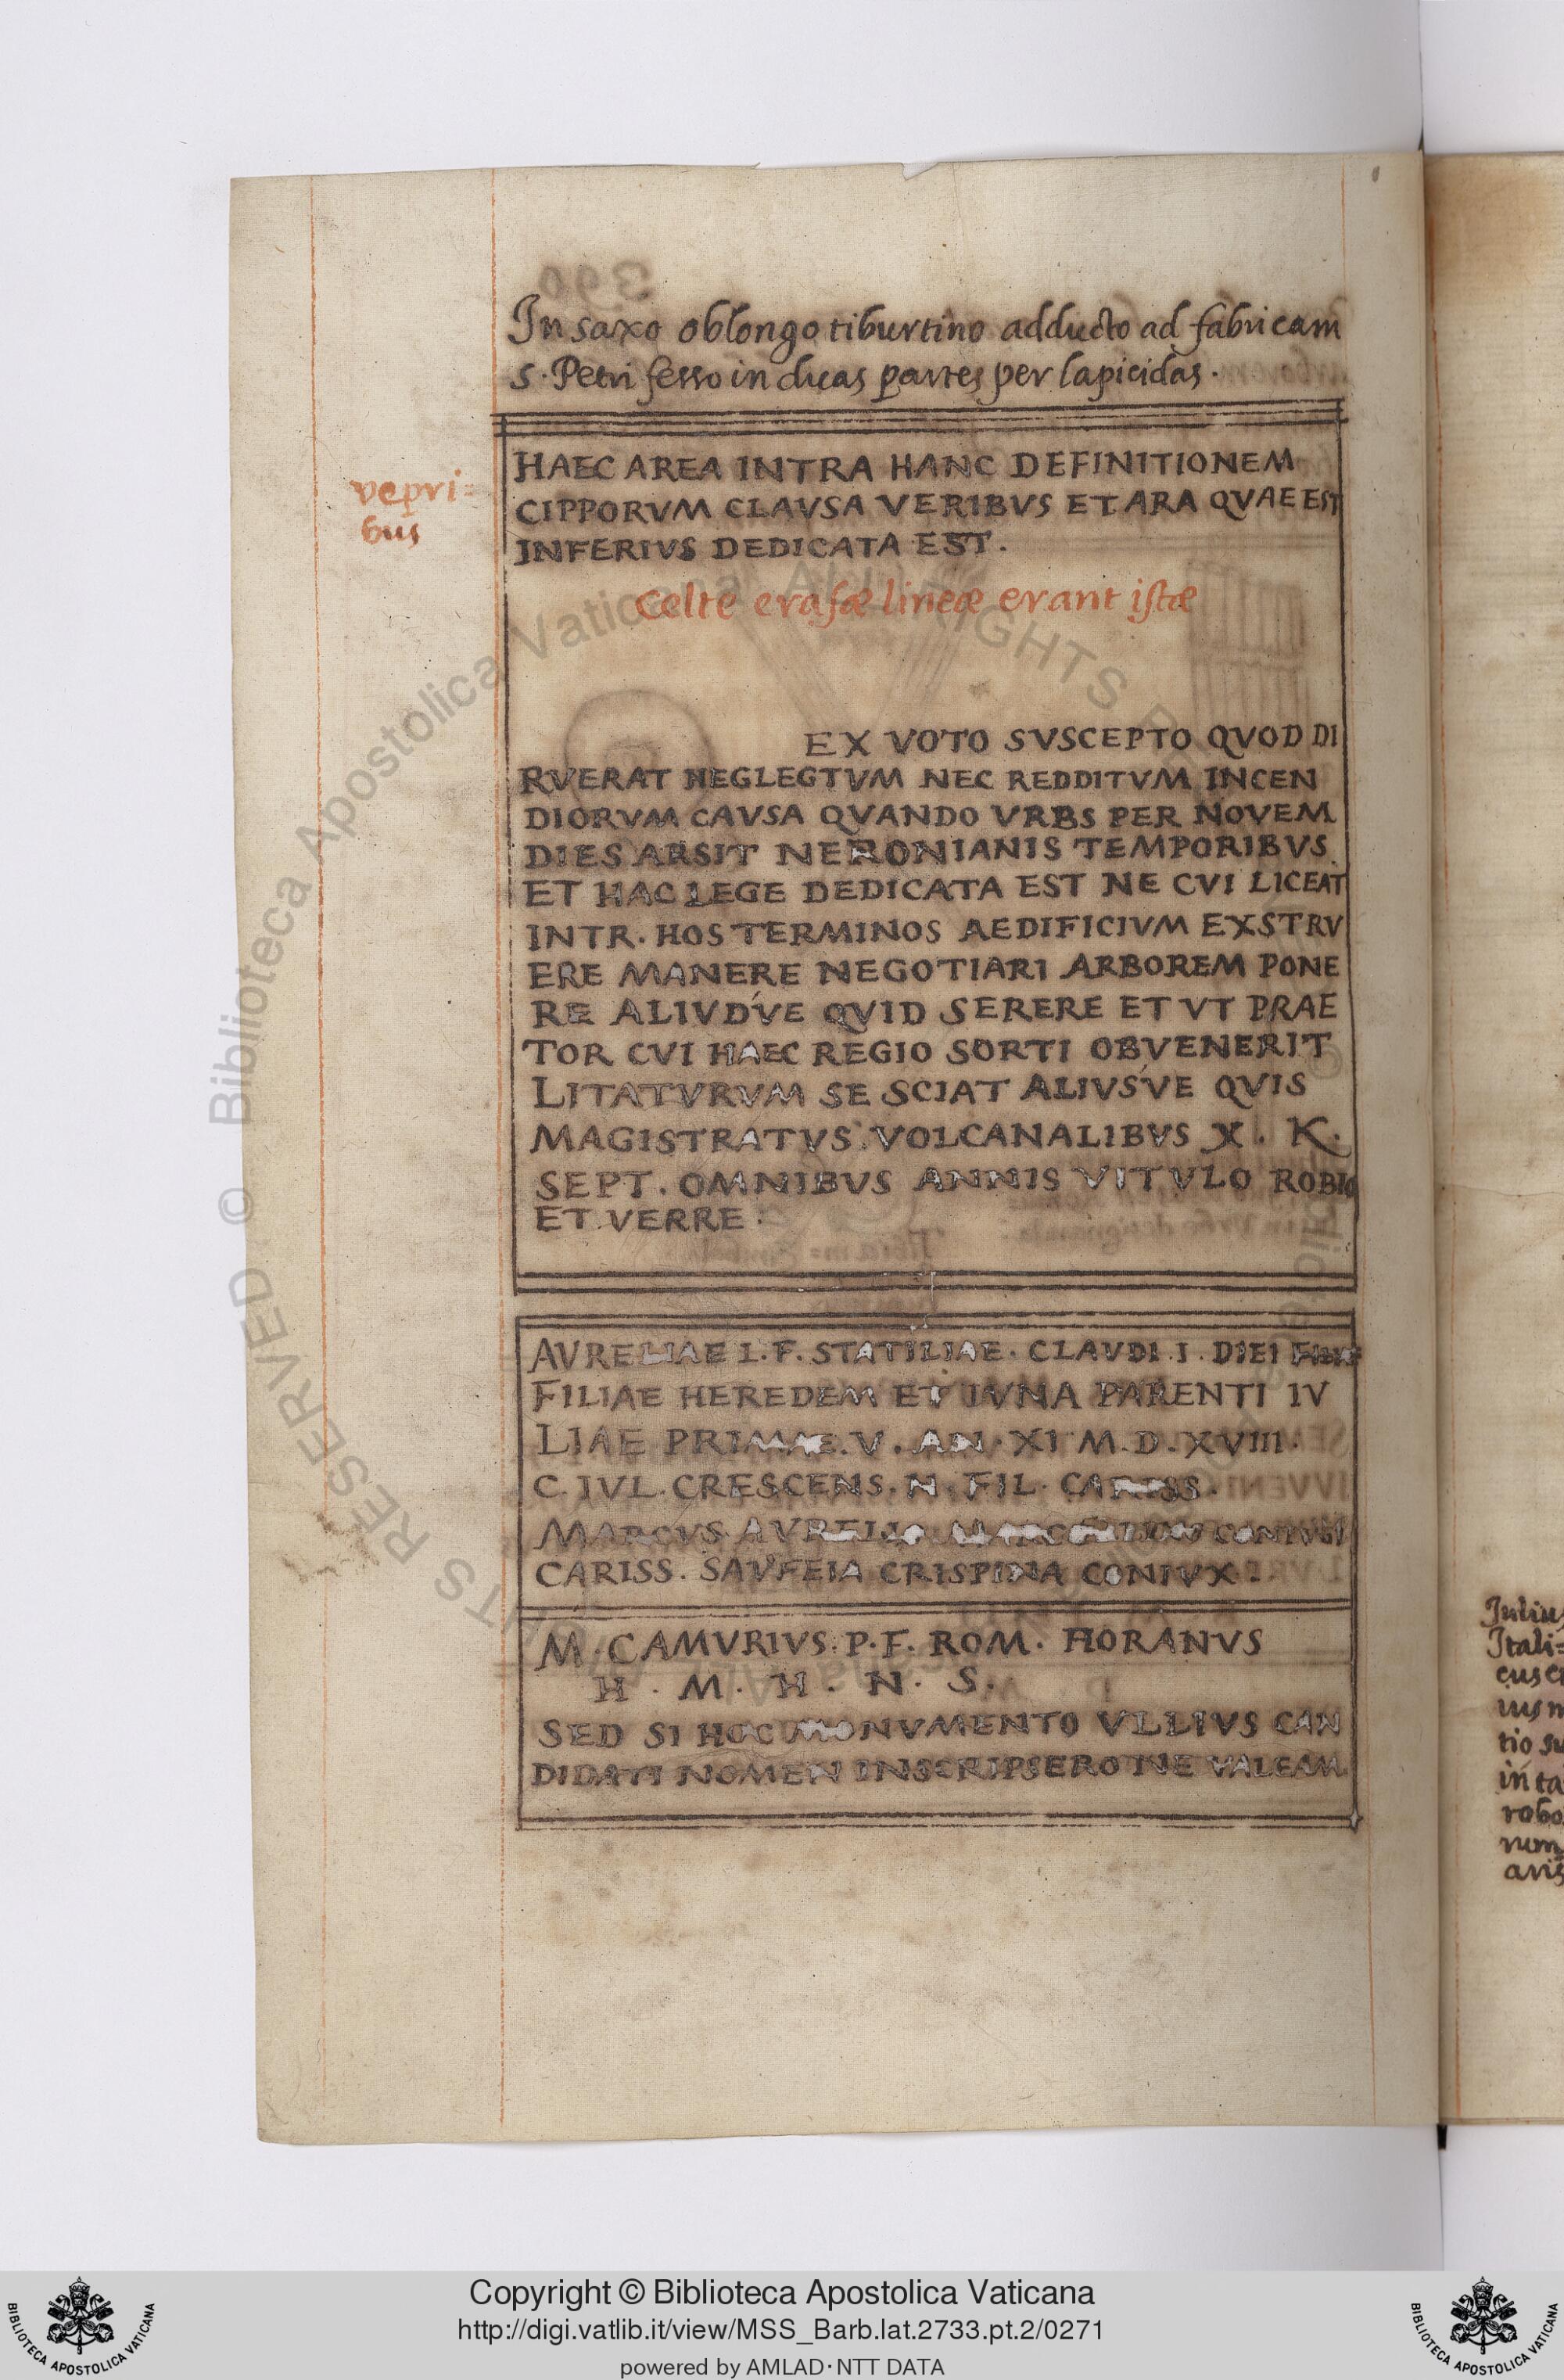 In saxo oblongo tiburtino adducto ad fabricam
S. Petri fesso in duas partes per lapicidas.
HAEC AREA INTRA HANC DEFINITIONEM
vepri=
bus
CIPPORVM CLAVSA VERIBVS ET ARA QVAE EST
INFERIVS DEDICATA EST.
Celte erasæ lineæ erant istæ
EX VOTO SVSCEPTO QVOD DI
RVERAT NEGLEGTVM NEC REDDITVM INCEN
DIORVM CAVSA QVANDO VRBS PER NOVEM
DIES ARSIT NERONIANIS TEMPORIBVS.
ET HAC LEGE DEDICATA EST NE CVI LICEAT
INTR. HOS TERMINOS AEDIFICIVM EXSTRV
ERE MANERE NEGOTIARI ARBOREM PONE
RE ALIVD'VE QVID SERERE ET VT PRAE
TOR CVI HAEC REGIO SORTI OBVENERIT
LITATVRVM SE SCIAT ALIVS'VE QVIS
MAGISTRATVS VOLCANALIBVS X. K.
SEPT. OMNIBVS ANNIS VITVLO ROBIO
ET VERRE.
AVRELIAE L. F. STATILIAE. CLAVDI. I. DIEI
FILIAE HEREDEM ET IVNA PARENTI IV
LIAE PRIMAE. V. AN. XI M. D. XVIII.
C. IVL. CRESCENS. N. FIL. CARISS.
MARCVS AVRELIO CONIVGI
CARISS. SAVFEIA CRISPINA CONIVX.
M. CAMVRIVS. P. F. ROM. HORANVS
H. M. H. N. S.
SED SI HOC MONVMENTO VLLIVS CAN
DIDATI NOMEN INSCRIPSERO NE VALEAM.
Julius
Itali=
cus e
ius n
tio su
in ta
robo
rum
avis
Copyright © Biblioteca Apostolica Vaticana
http://digi.vatlib.it/view/MSS_Barb.lat.2733.pt.2/0271
powered by AMLAD·NTT DATA
BIBLIOTECA APOSTOLICA VATICANA
BIBLIOTECA APOSTOLICA VATICANA